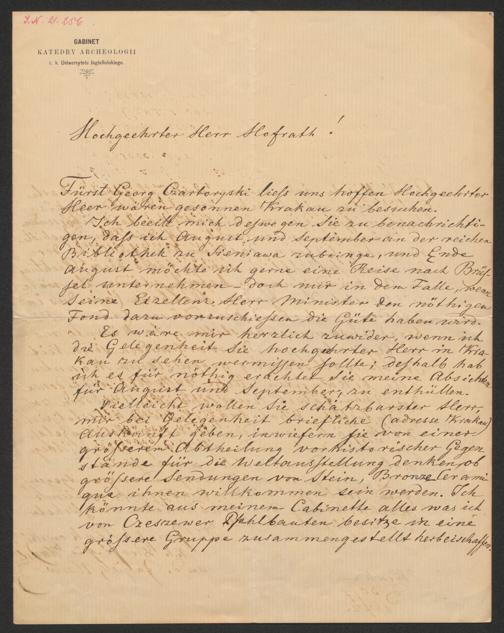 J.N. 21.256
GABINET
KATEDRY ARCHEOLOGII
c. k. Uniwersytetu Jagiellońskiego.
Hochgeehrter Herr Hofrath!
Fürst Georg Czartoryski liess uns hoffen Hochgeehrter
Heer wären gesonnen Krakau zu besuchen.
Ich beeile mich deswegen Sie zu benachrichti-
gen, dass ich August und September an der reichen
Bibliothek zu Sieniawa zubringe, und Ende
August möchte ich gerne eine Reise nach Brüs-
sel unternehmen – doch nur in dem Falle, wenn
Seine Exzellenz, Herr Minister den nöthigen
Fond dazu vorzuschiessen die Güte haben wird.
Es wäre mir herzlich zuwider, wenn ich
die Gelegenheit Sie hochgeehrter Herr in Kra-
kau zu sehen, vermissen sollte; desshalb hab
ich es für nöthig erachtet Sie meine Absichten
für August und September, zu enthüllen.
Vielleicht wollen Sie schätzbarster Herr,
mir bei Gelegenheit briefliche (adresse Krakau)
Auskunft geben, inwiefern sie von einer
grösseren Abtheilung vorhistorischer Gegen-
stände für die Weltausstellung denken, ob
grössere Sendungen von Stein, Bronze Cerami-
que ihnen willkommen sein werden. Ich
könnte aus meinem Cabinette alles was ich
von Czeszewer Pfahlbauten besitze in eine
grössere Gruppe zusammengestellt herbeischaffen,